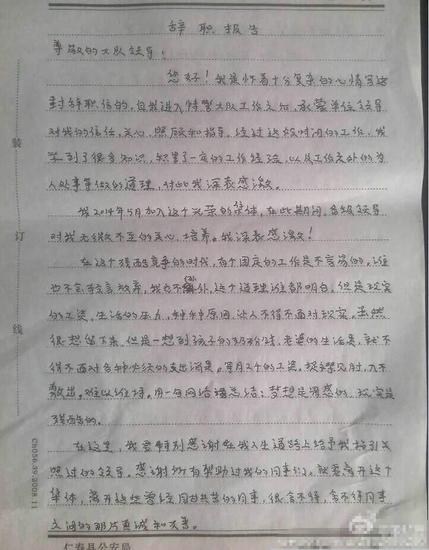 辞职报告
尊敬的大队领导：
您好！我是怀着十分复杂的心情写这
封辞职信的，自我进入特警大队工作之后，承蒙单位领导
对我的信任，关心，照顾和指导，经过这段时间的工作，我
学到了很多知识，积累了一定的工作经验，以及工作之外的为
人处事等做的道理，对此我深表感激。
我2014年5月加入这个光荣的集体，在此期间，各级领导
对我无微不至的关心、培养。我深表感激！
在这个残酷竞争的时代，有个固定的工作是不容易的，谁
也不会轻言放弃，我也不例外，这个道理谁都明白。但是现实
的工资，生活的压力，种种原因，让人不得不面对现实。虽然
很想留下来，但是一想到孩子的奶粉钱，老婆的生活费，就不
得不面对各种必须的支出消费。每月2个的工资，捉襟见肘，入不
敷出。难以维持。用一句网络语总结：梦想是满意的，现实是
残酷的。
在这里，我要特别感谢在我人生道路上给予我指引关
照过的领导。感谢所有帮助过我的同事们，就要离开这个
集体，离开这些曾经同甘共苦的同事，很舍不得，舍不得同事
之间的那片真诚和友善。
装
订
线
Ch056-39-2008.11
仁寿县公安局